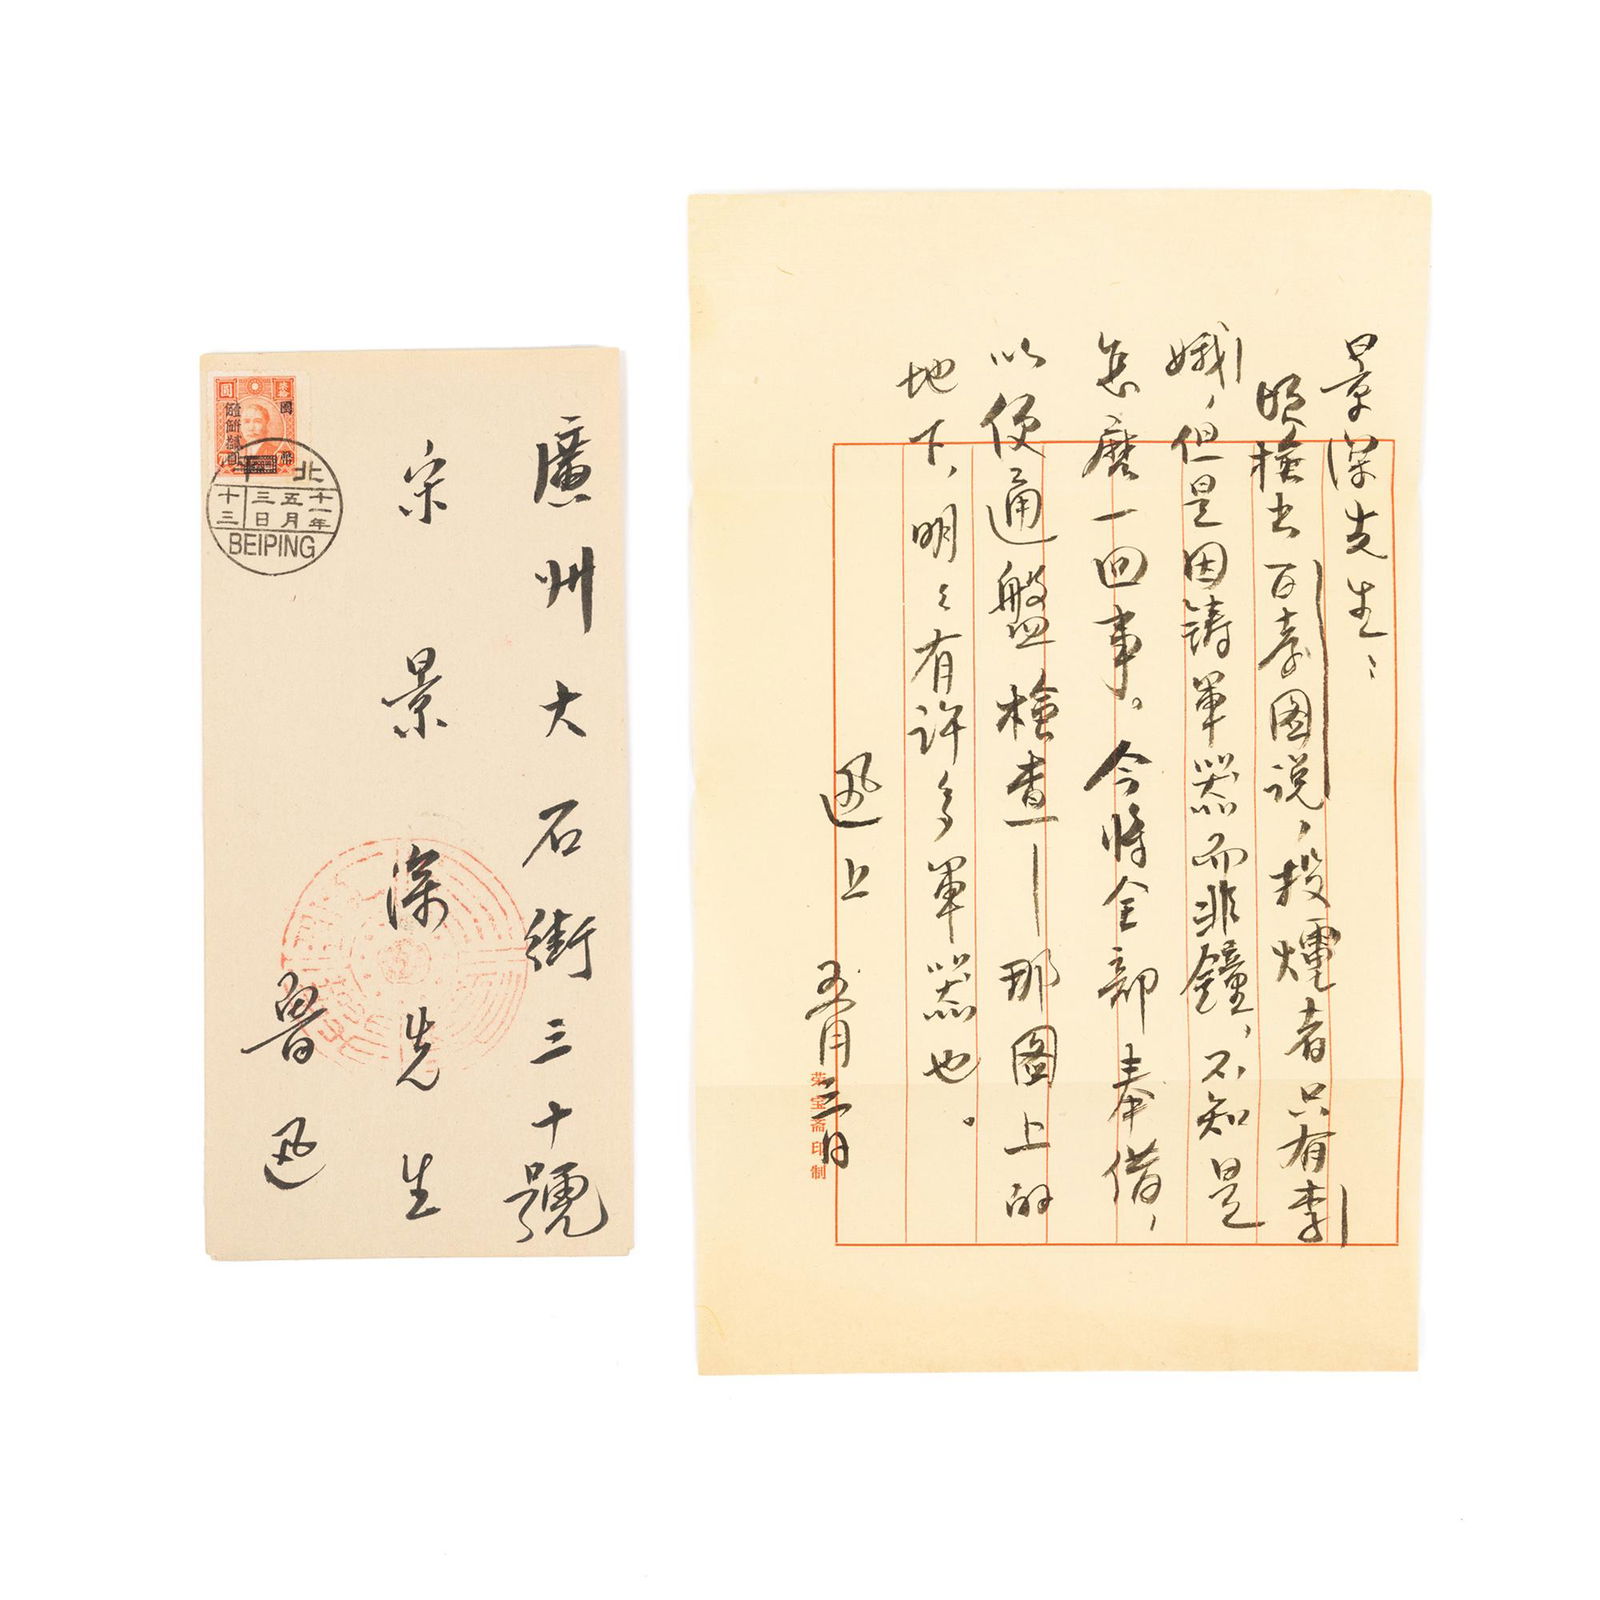 國幣
北平
十一年
五月
三日
十三
BEIPING
廣州大石街三十號
宋景深先生
魯迅
景深先生：
頃檢出百孝图说，投爐者只有李
娥，但是因鑄軍器而非鐘，不知是
怎麼一回事。今將全部奉借，
以便通盤檢查——那图上的
地下，明〻有許多軍器也。
迅上 五月三日
荣宝斋印制